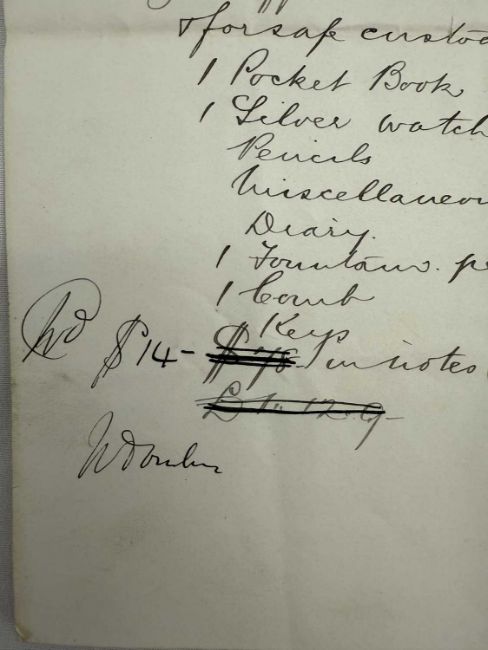 & for safe custod
1 Pocket Book
1 Silver watch
Pencils
Miscellaneou
Diary.
1 Fountain. pe
1 Comb
Keys
$14- in notes
£1. 12. 9